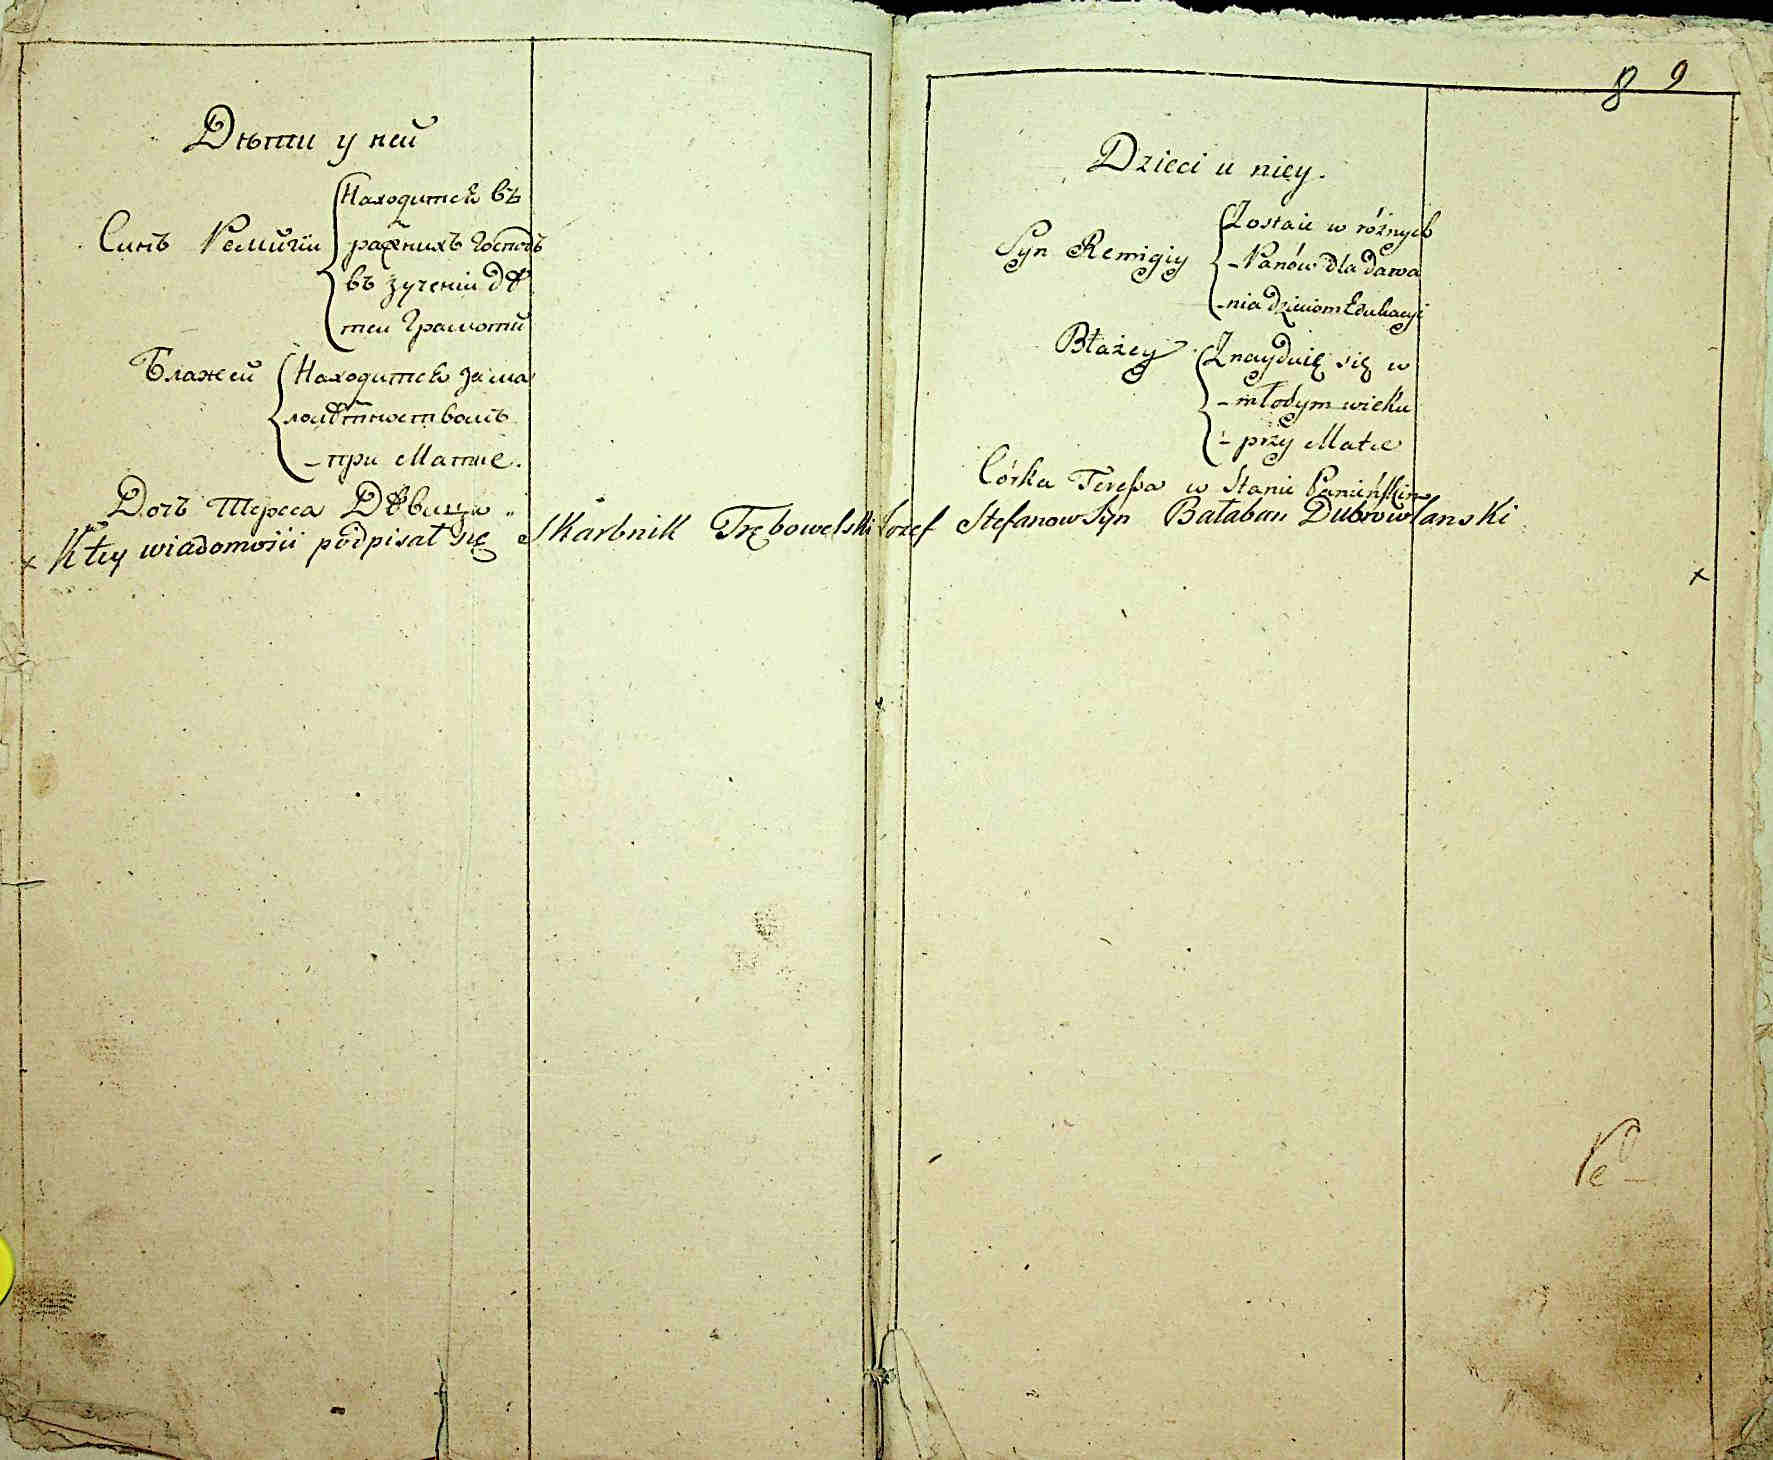 Дѣти у ней
Синъ Ремигіи
Находится въ
разнихъ Господъ
въ зученіи дѣ
теи Грамоти
Блажеи
Находится за ма
лолѣтностволъ
- при Матце.
Дочъ Тереса Дѣвица
8 9
Dzieci u niey.
Syn Remigiy
Zostaie w różnych
- Panów dla dawa
- nia dzieciom Edukacyi
Błażey
Znayduię się w
- młodym wieku
- przy Matce
Córka Teressa w Stanie Panieńskim
x K tey wiadomości podpisał się Skarbnik Trębowelski Iozef Stefanow Syn Bałaban Dubrowlanski
x